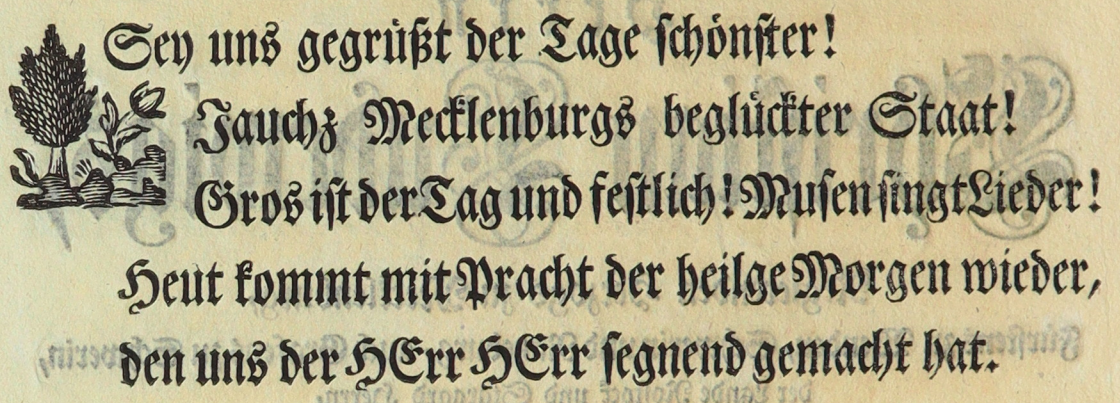 Sey uns gegrüßt der Tage ſchönſter!
Jauchz Mecklenburgs beglückter Staat!
Gros iſt der Tag und feſtlich! Muſen ſingt Lieder!
Heut kommt mit Pracht der heilge Morgen wieder,
den uns der HErr HErr ſegnend gemacht hat.